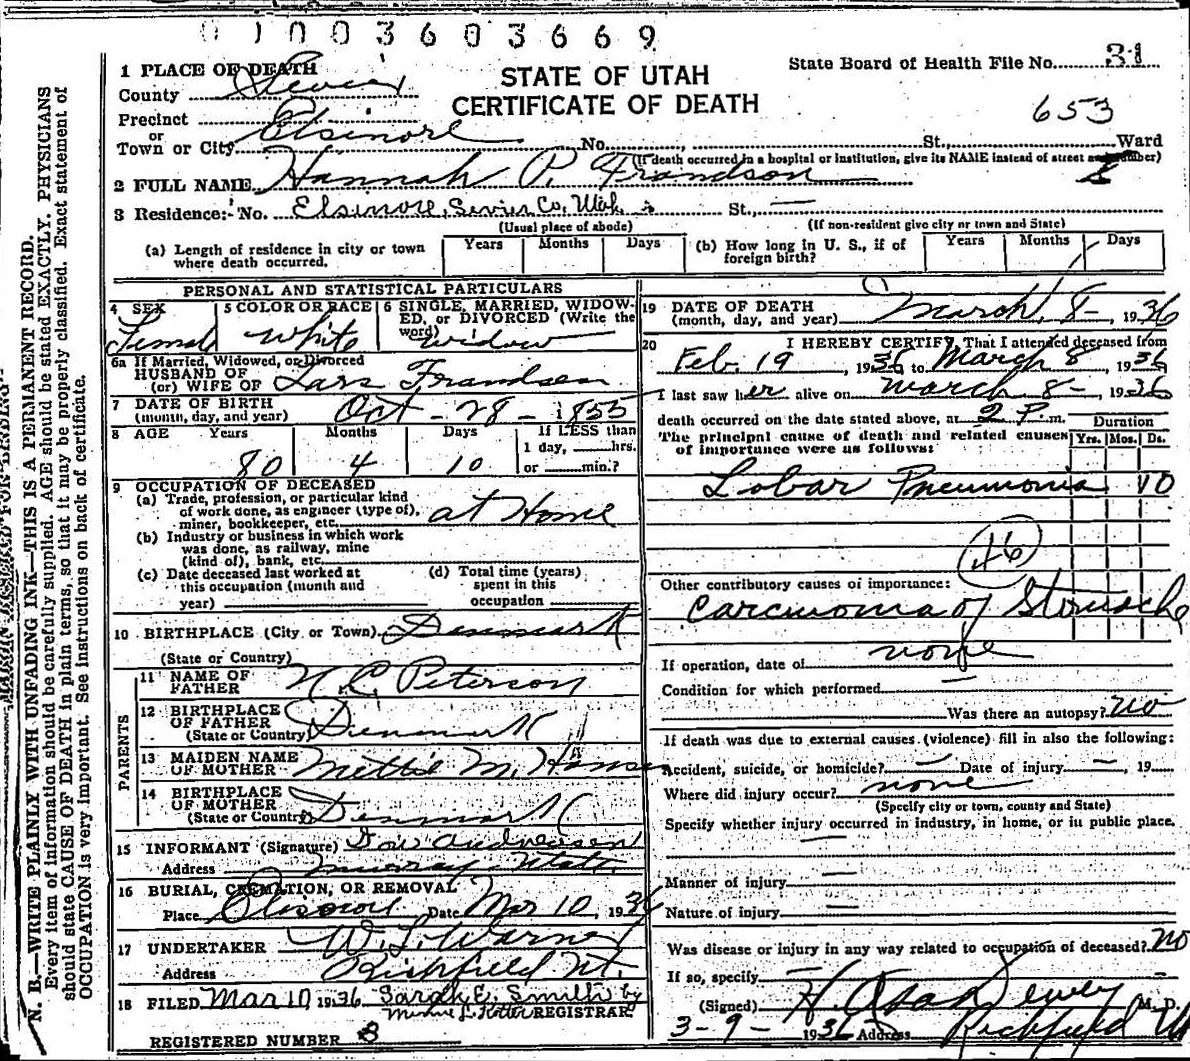 0 1 0 0 3 6 0 3 6 6 9
STATE OF UTAH
CERTIFICATE OF DEATH
State Board of Health File No. 31
653
1 PLACE OF DEATH
County Sevier
Precinct
or
Town or City Elsinore No. St., Ward
(If death occurred in a hospital or institution, give its NAME instead of street and number)
2 FULL NAME Hannah P. Frandson
3 Residence:- No. Elsinore, Sevier Co, Utah St., —
(Usual place of abode) (If non-resident give city or town and State)
(a) Length of residence in city or town where death occurred. Years Months Days
(b) How long in U. S., if of foreign birth? Years Months Days
PERSONAL AND STATISTICAL PARTICULARS
4 SEX Female
5 COLOR OR RACE White
6 SINGLE, MARRIED, WIDOWED, or DIVORCED (Write the word) Widow
6a If Married, Widowed, or Divorced
HUSBAND OF
(or) WIFE OF Lars Frandsen
7 DATE OF BIRTH
(month, day, and year) Oct - 28 - 1855
8 AGE Years Months Days If LESS than
1 day, hrs.
80 4 10 or min.?
9 OCCUPATION OF DECEASED
(a) Trade, profession, or particular kind
of work done, as engineer (type of),
miner, bookkeeper, etc. at Home
(b) Industry or business in which work
was done, as railway, mine
(kind of), bank, etc.
(c) Date deceased last worked at
this occupation (month and
year)
(d) Total time (years)
spent in this
occupation
10 BIRTHPLACE (City or Town) Denmark
(State or Country)
PARENTS
11 NAME OF
FATHER N. C. Peterson
12 BIRTHPLACE
OF FATHER
(State or Country) Denmark
13 MAIDEN NAME
OF MOTHER Mettie M. Hansen
14 BIRTHPLACE
OF MOTHER
(State or Country) Denmark
15 INFORMANT (Signature) Andreasen
Address Murray Utah.
16 BURIAL, CREMATION, OR REMOVAL
Place Elsinore Date Mar 10, 1936
17 UNDERTAKER W. L. Warner
Address Richfield Ut.
18 FILED Mar 10 1936 Sarah E. Smith by
Minnie L. REGISTRAR
REGISTERED NUMBER 3
19 DATE OF DEATH
(month, day, and year) March, 8 - 1936
20 I HEREBY CERTIFY, That I attended deceased from
Feb. 19, 1936 to March 8, 1936
I last saw her alive on March 8 -, 1936
death occurred on the date stated above, at 2 P. m.
The principal cause of death and related causes
of importance were as follows:
Duration
Yrs. Mos. Ds.
Lobar Pneumonia 10
46
Other contributory causes of importance:
Carcinoma of Stomache
If operation, date of none
Condition for which performed
Was there an autopsy? no
If death was due to external causes (violence) fill in also the following:
Accident, suicide, or homicide? — Date of injury —, 19
Where did injury occur? none
(Specify city or town, county and State)
Specify whether injury occurred in industry, in home, or in public place.
—
Manner of injury —
Nature of injury —
Was disease or injury in any way related to occupation of deceased? no
If so, specify —
(Signed) H. Asa Dewey M. D.
3 - 9 - 1936 Address Richfield Ut
N. B.—WRITE PLAINLY WITH UNFADING INK—THIS IS A PERMANENT RECORD.
Every item of information should be carefully supplied. AGE should be stated EXACTLY. PHYSICIANS
should state CAUSE OF DEATH in plain terms, so that it may be properly classified. Exact statement of
OCCUPATION is very important. See instructions on back of certificate.